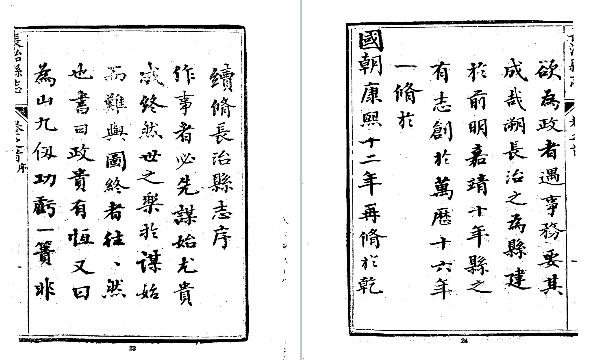 續脩長治縣志序
作事者必先謀始尤貴
成終然世之樂於謀始
而難與圖終者往、然
也書曰政貴有恆又曰
為山九仞功虧一簣非
長治縣志
卷之首序
23
欲為政者遇事務要其
成哉溯長治之為縣建
於前明嘉靖十年縣之
有志創於萬曆十六年
一脩於
國朝康熙十二年再脩於乾
24